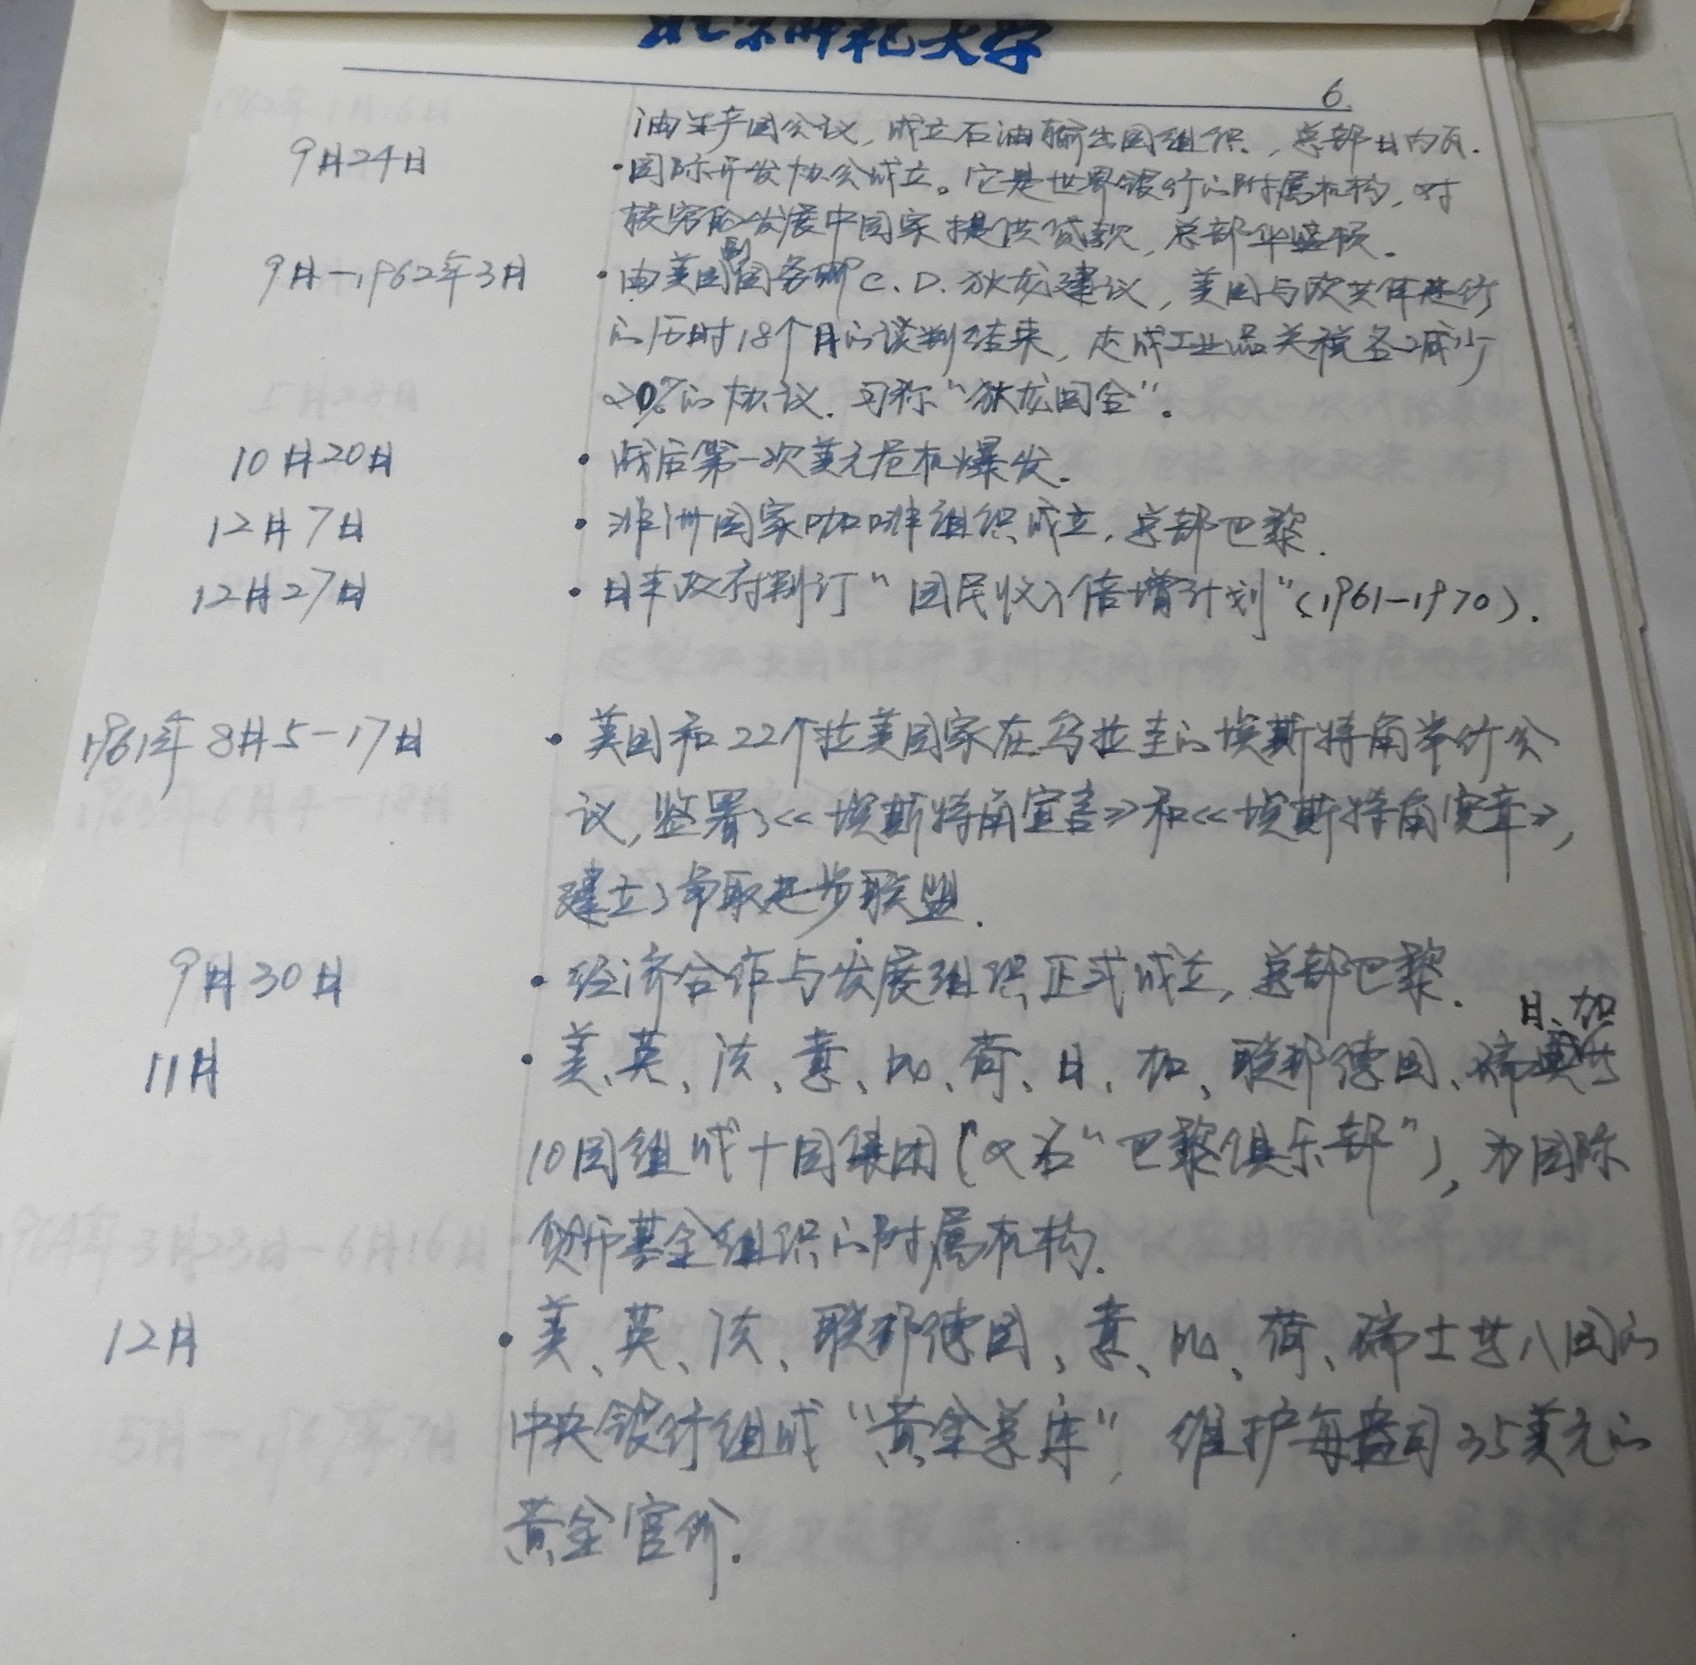 北京师范大学
6.
油生产国会议，成立石油输出国组织，总部日内瓦.
9月24日 ·国际开发协会成立。它是世界银行的附属机构，对
较穷的发展中国家提供贷款，总部华盛顿。
9月—1962年3月 ·由美国副国务卿C.D.狄龙建议，美国与欧共体进行
的历时18个月的谈判结束，达成工业品关税各减少
20%的协议.习称“狄龙回合”。
10月20日 ·战后第一次美元危机爆发.
12月7日 ·非洲国家咖啡组织成立，总部巴黎.
12月27日 ·日本政府制订“国民收入倍增计划”（1961—1970）.
1961年8月5—17日 ·美国和22个拉美国家在乌拉圭的埃斯特角举行会
议，签署了《埃斯特角宣言》和《埃斯特角宪章》，
建立了争取进步联盟.
9月30日 ·经济合作与发展组织正式成立，总部巴黎.
日、加
11月 ·美、英、法、意、比、荷、日、加、联邦德国、瑞典等
10国组成十国集团（又名“巴黎俱乐部”），为国际
货币基金组织的附属机构.
12月 ·美、英、法、联邦德国、意、比、荷、瑞士等八国的
中央银行组成“黄金总库”，维护每盎司35美元的
黄金官价.